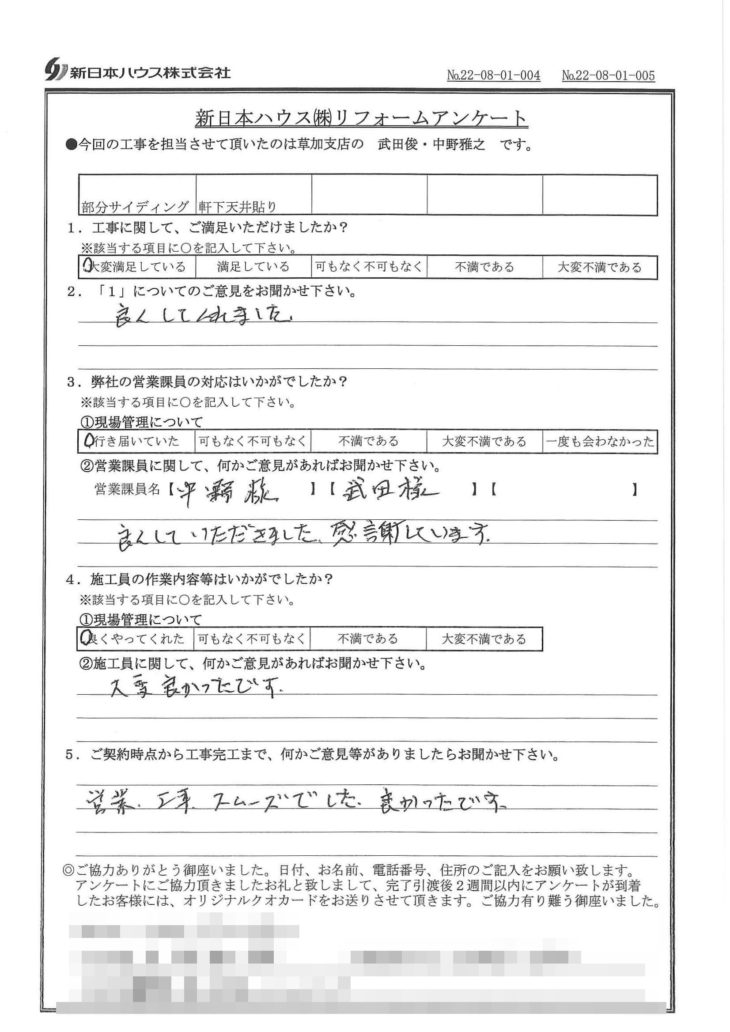 新日本ハウス株式会社 №22-08-01-004 №22-08-01-005
新日本ハウス㈱リフォームアンケート
●今回の工事を担当させて頂いたのは草加支店の 武田俊・中野雅之 です。
部分サイディング 軒下天井貼り
1．工事に関して、ご満足いただけましたか？
※該当する項目に○を記入して下さい。
大変満足している 満足している 可もなく不可もなく 不満である 大変不満である
2．「1」についてのご意見をお聞かせ下さい。
良くしてくれました。
3．弊社の営業課員の対応はいかがでしたか？
※該当する項目に○を記入して下さい。
①現場管理について
行き届いていた 可もなく不可もなく 不満である 大変不満である 一度も会わなかった
②営業課員に関して、何かご意見があればお聞かせ下さい。
営業課員名【 様 】【 武田様 】【 】
良くしていただきました、感謝しています。
4．施工員の作業内容等はいかがでしたか？
※該当する項目に○を記入して下さい。
①現場管理について
良くやってくれた 可もなく不可もなく 不満である 大変不満である
②施工員に関して、何かご意見があればお聞かせ下さい。
大変良かったです。
5．ご契約時点から工事完工まで、何かご意見等がありましたらお聞かせ下さい。
営業、工事、スムーズでした、良かったです。
◎ご協力ありがとう御座いました。日付、お名前、電話番号、住所のご記入をお願い致します。
アンケートにご協力頂きましたお礼と致しまして、完了引渡後2週間以内にアンケートが到着
したお客様には、オリジナルクオカードをお送りさせて頂きます。ご協力有り難う御座いました。